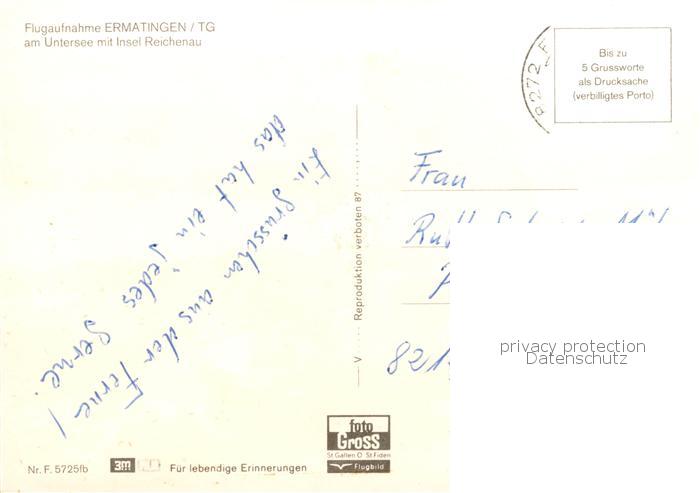 Flugaufnahme ERMATINGEN / TG
am Untersee mit Insel Reichenau
8272 E
Bis zu
5 Grussworte
als Drucksache
(verbilligtes Porto)
Ein Grüsschen aus der Ferne!
das hat ein jedes gerne.
V Reproduktion verboten 87
Frau
821
privacy protection
Datenschutz
foto
Gross
St Gallen O St Fiden
Flugbild
Nr. F. 5725fb
3m
Für lebendige Erinnerungen